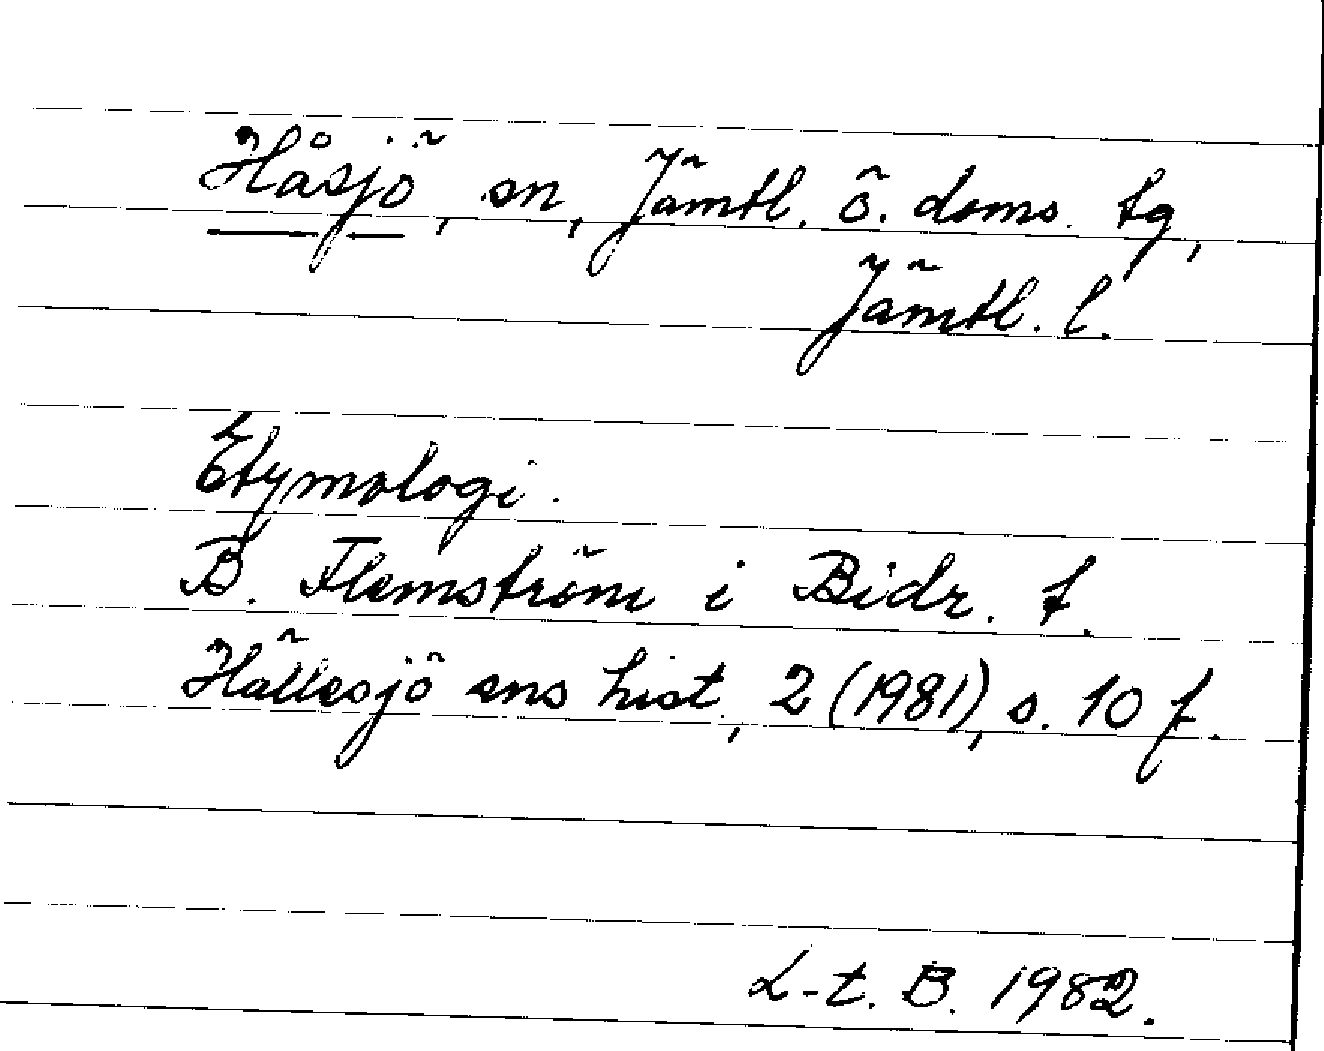 Håsjö, sn, Jämtl. ö. doms. tg,
Jämtl. l.
Etymologi.
B. Flemström i Bidr. t.
Hällesjö sns hist., 2 (1981), s. 10 f.
L-t. B. 1982.